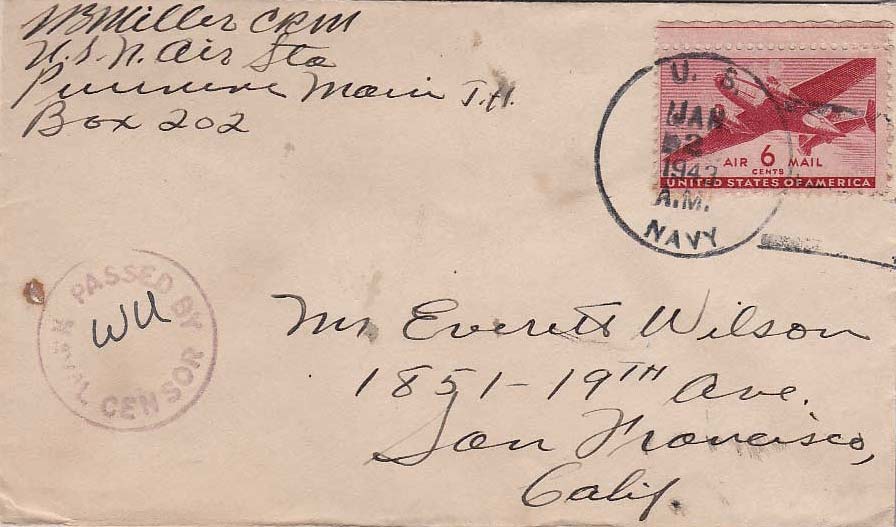 WBMiller CRM
U.S.N. Air Sta
Puunene Maui T.H.
Box 202
U. S.
JAN
2
1942
A.M.
NAVY
AIR 6 MAIL
CENTS
UNITED STATES OF AMERICA
PASSED BY
NAVAL CENSOR
Mr Everett Wilson
1851-19TH Ave.
San Francisco,
Calif.